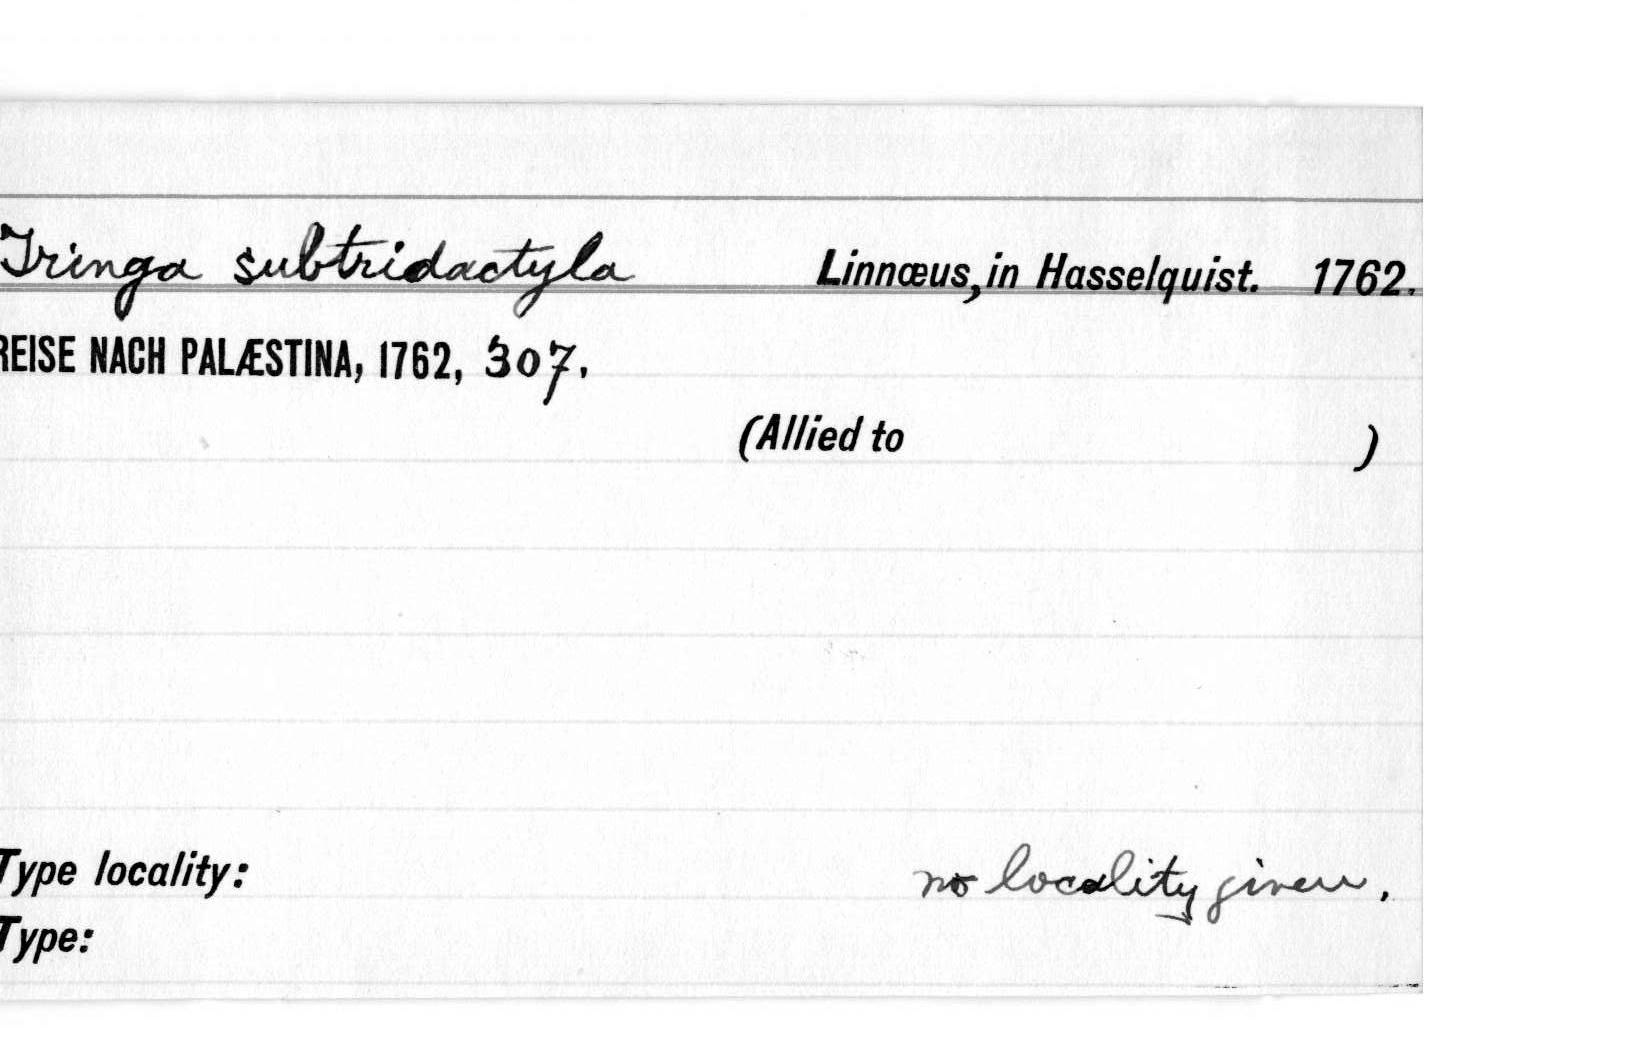 Tringa subtridactyla Linnœus, in Hasselquist. 1762.
REISE NACH PALÆSTINA, 1762, 307.
(Allied to )
Type locality: no locality given.
Type: